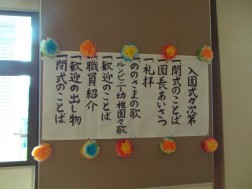 入園式々次第
一開式のことば
一園長あいさつ
一礼拝
一ののさまの歌
ルンビニー幼稚園々歌
一歓迎のことば
一職員紹介
一歓迎の出し物
一閉式のことば